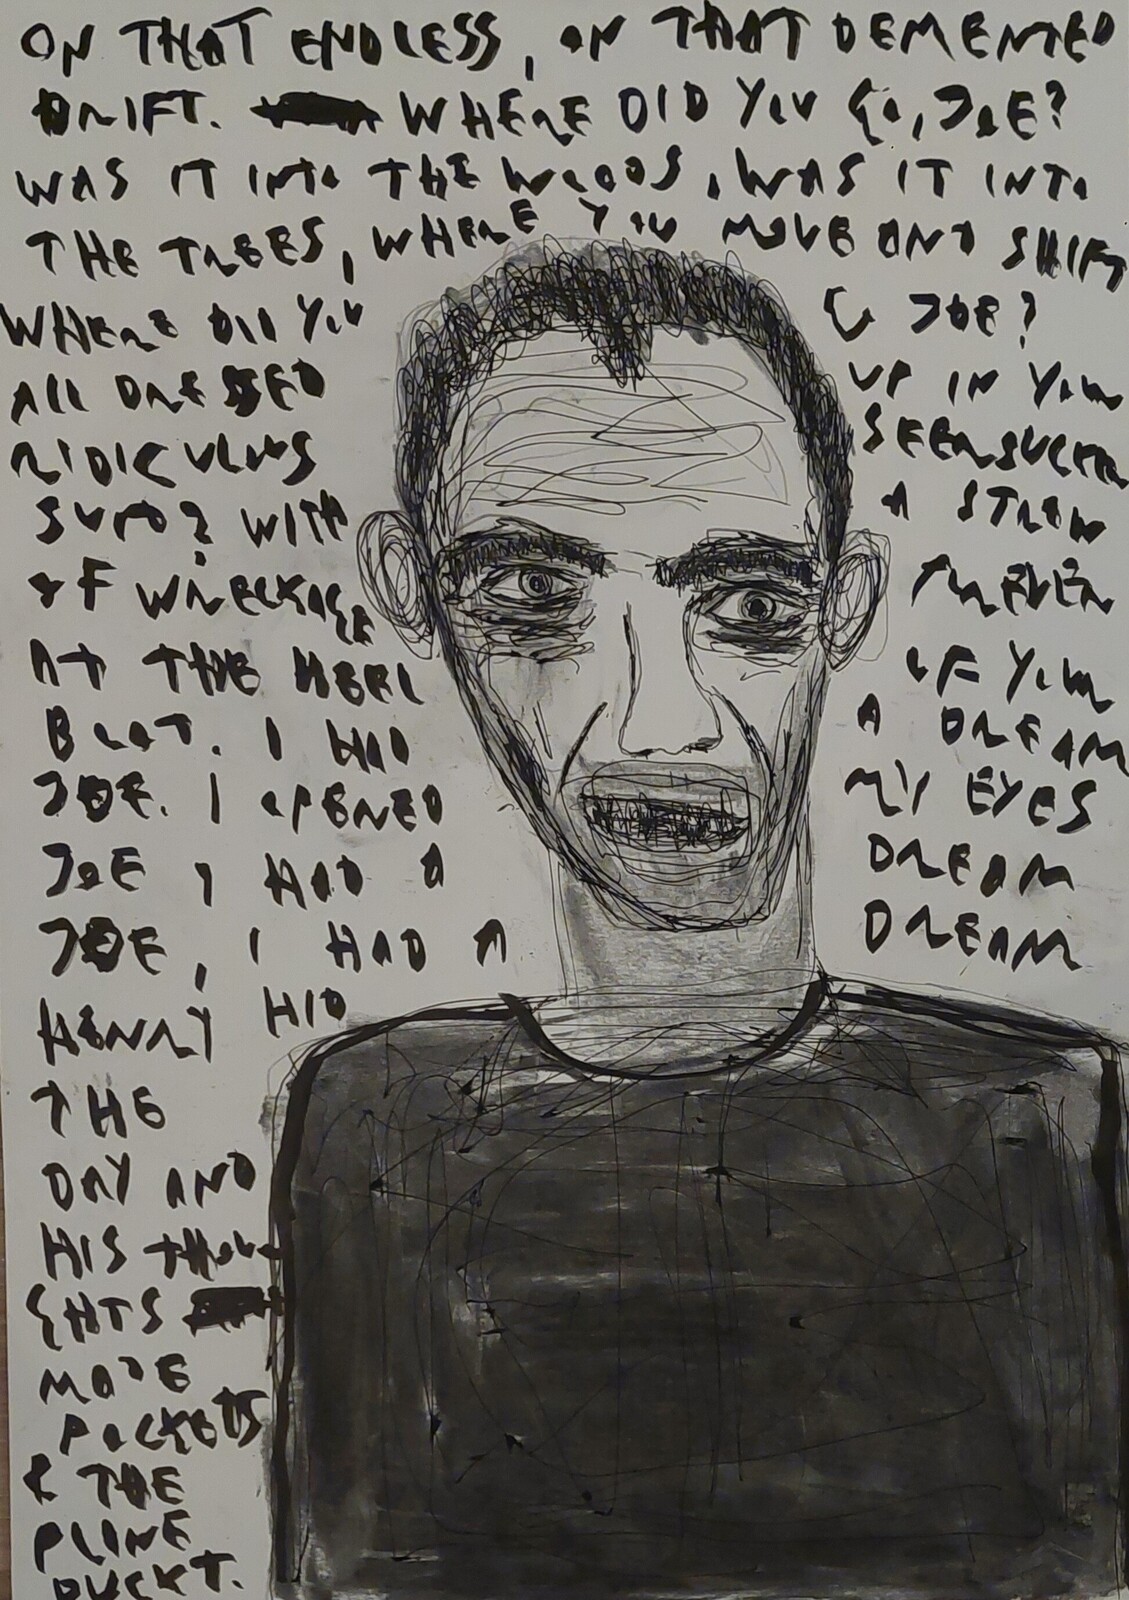 ON THAT ENDLESS, ON THAT DEMENTED
DRIFT. WHERE DID YOU GO, JOE?
WAS IT INTO THE WOODS, WAS IT INTO
THE TREES, WHERE YOU MOVE AND SHIFT
WHERE DID YOU G JOE?
ALL DRESSED UP IN YOUR
RIDICULOUS SEERSUCKER
WITH A STRAW
OF WRECKAGE
AT THE HEEL OF YOUR
BOOT. I HAD A DREAM
JOE. I OPENED MY EYES
JOE, I HAD A DREAM
JOE, I HAD A DREAM
HENRY HID
THE
DAY AND
HIS THOU
GHTS
MADE
POCKETS
& THE